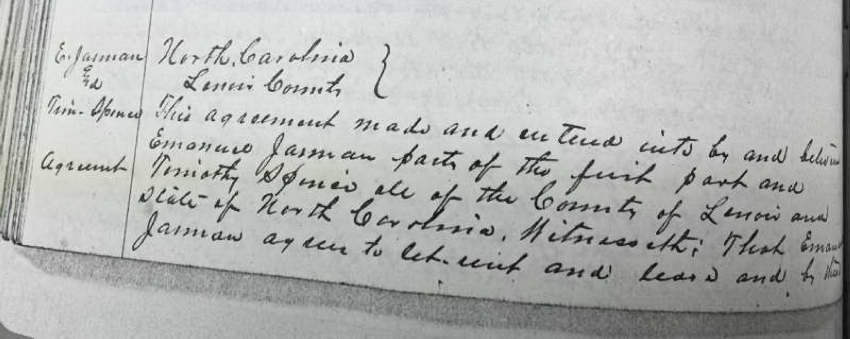 E. Jarman
&
Tim. Spence
Agreement
North Carolina }
Lenoir County
This agreement made and entered into by and between
Emanuel Jarman party of the first part and
Timothy Spence all of the County of Lenoir and
State of North Carolina, Witnesseth; That Eman
Jarman agrees to let-rent and lease and by